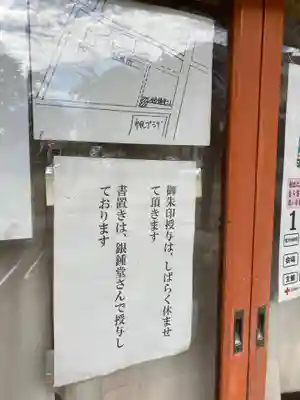 御朱印授与は、しばらく休ませ
て頂きます
書置きは、銀鍾堂さんで授与し
ております
1
会場
主催